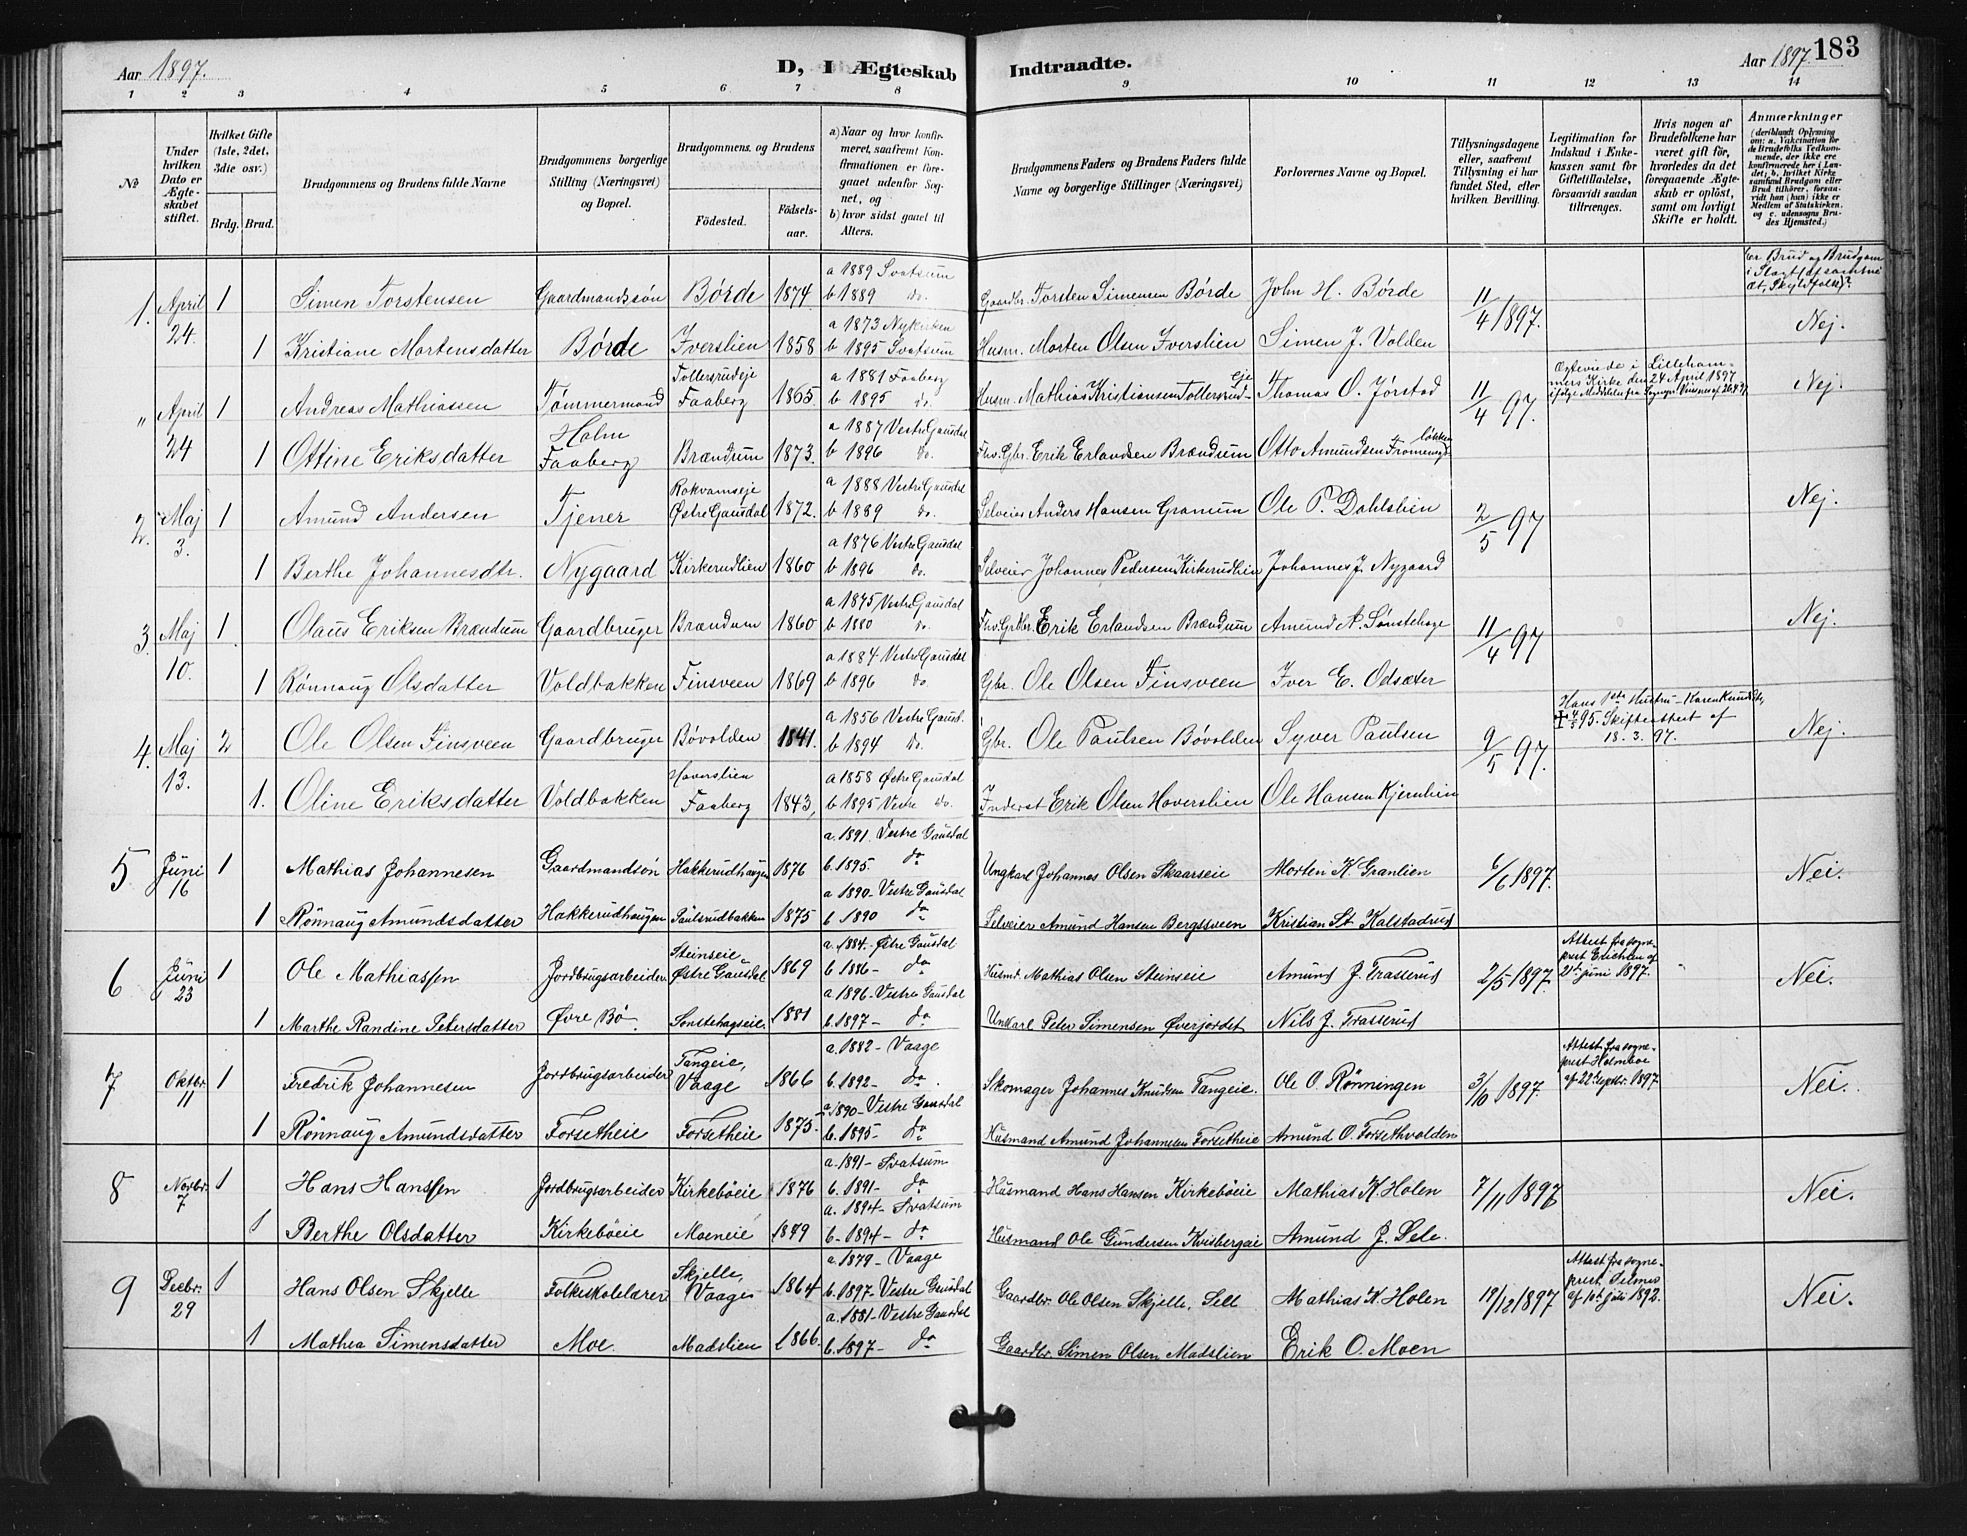 Aar 1897.
D, I Ægteskab Indtraadte.
Aar 1897. 183
1 2 3 4 5 6 7 8 9 10 11 12 13 14
№
Under hvilken Dato er Ægteskabet stiftet.
Hvilket Gifte (1ste, 2det, 3die osv.)
Brdg. Brud.
Brudgommens og Brudens fulde Navne
Brudgommens borgerlige Stilling (Næringsvei) og Bopæl.
Brudgommens og Brudens
Födested.
Födsels-aar.
a) Naar og hvor konfirmeret, saafremt Konfirmationen er foregaaet udenfor Sognet, og
b) hvor sidst gaaet til Alters.
Brudgommens Faders og Brudens Faders fulde Navne og borgerlige Stillinger (Næringsvei)
Forlovernes Navne og Bopæl.
Tillysningsdagene eller, saafremt Tillysning ei har fundet Sted, efter hvilken Bevilling.
Legitimation for Indskud i Enkekassen samt for Giftetilladelse, forsaavidt saadan tiltrænges.
Hvis nogen af Brudefolkene har været gift för, hvorledes da det foregaaende Ægteskab er oplöst, samt om lovligt Skifte er holdt.
Anmærkninger
(deriblandt Oplysning om: a. Vaccination for de Brudefolks Vedkommende, der ikke ere konfirmerede her i Landet; b. hvilket Kirkesamfund Brudgom eller Brud tilhörer, forsaavidt han (hun) ikke er Medlem af Statskirken, og c. udensogns Brudes Hjemsted.)
Er Brud og Brudgom i Slægt
1. April 24. 1 Simen Torstensen Gaardmandssøn Børde 1874. a 1889 Svatsum b 1889 do. Gaardbr. Torsten Simensen Børde John H. Børde 11/4 1897. Nej.
1 Kristiane Mortensdatter Børde Iverslien 1858 a 1873 Nykirken b 1895 Svatsum Husm. Morten Olsen Iverslien Simen J. Volden
" April 24 1 Andreas Mathiassen Tømmermand Tollersrudeje Faaberg 1865. a 1881 Faaberg b 1895 do. Husm. Mathias Kristiansen Tollersrudeje Thomas O. Jørstad 11/4 97. Ægteviede i Lillehammers Kirke den 24 April 1897 Nej.
1 Ottine Eriksdatter Holm Faaberg Brændum 1873. a 1887 Vestre Gausdal b 1896 do. Fhv. Gbr. Erik Erlandsen Brændum Otto Amundsen
2. Maj 3. 1 Amund Andersen Tjener Rokvamseje Østre Gausdal 1872. a 1888 Vestre Gausdal b 1889 do. Selveier Anders Hansen Granum Ole P. Dahlslien 2/5 97 Nej.
1 Berthe Johannesdtr. Nygaard Kirkerudlien 1860 a 1876 Vestre Gausdal b 1896 do. Selveier Johannes Pedersen Kirkerudlien Johannes J. Nygaard
3. Maj 10. 1. Olaus Eriksen Brændum Gaardbruger Brændum 1860 a 1875 Vestre Gausdal b 1880 do. Fhv. Grbr. Erik Erlandsen Brændum Amund A. Sønstehage 11/4 97 Nej.
1 Rønnaug Olsdatter Voldbakken Finsveen 1869 a 1884 Vestre Gausdal b 1896 do. Gbr. Ole Olsen Finsveen Iver E. Odsæter
4. Maj 13. 2 Ole Olsen Finsveen Gaardbruger Bøvolden 1841. a 1856 Vestre Gausd. b 1894 do. Gbr. Ole Paulsen Bøvolden Syver Paulsen 9/5 97. Hans 1ste Hustru - Karen Knudsdtr, 95. Skifteattest af 18. 3. 97. Nej.
1. Oline Eriksdatter Voldbakken Hoverslien Faaberg 1843, a 1858 Østre Gausdal b 1895 Vestre do. Inderst Erik Olsen Hoverslien Ole Hansen Kjernlien
5 Juni 16 1 Mathias Johannesen Gaardmandsøn Hakkerudhaugen 1876 a. 1891. Vestre Gausdal b. 1895. do Ungkarl Johannes Olsen Skaarseie Morten K. Granlien 6/6 1897. Nei.
1 Rønnaug Amundsdatter Hakkerudhaugen Paulsrudbakken 1875 a 1890- Vestre Gausdal b 1890 do Selveier Amund Hansen Bergssveen Kristian St. Kalstadrud
6 Juni 23 1 Ole Mathiassen Jordbrugsarbeider Steinseie Østre Gausdal 1869 a. 1884. Østre Gausdal b. 1886- do Husmd. Mathias Olsen Steinseie Amund J. Trasserud 2/5 1897. Attest fra sogneprest Erichsen af 21de juni 1897. Nei.
1 Marthe Randine Petersdatter Øvre Bø. Sønstehagseie. 1881 a. 1896- Vestre Gausdal b. 1897- do Unkarl Peter Simensen Øverjordet Nils J. Trasserud
7 Oktbr. 11 1 Fredrik Johannesen Jordbrugsarbeider Tangeie, Vaage 1866 a. 1882- Vaage b. 1892- do. Skomager Johannes Knudsen Tangeie. Ole O. Rønningen 3/10 1897. Attest fra sogneprest Holmboe af 22de septbr. 1897 Nei.
1 Rønnaug Amundsdatter Forsetheie Forsetheie 1875. a 1890- Vestre Gausdal b. 1895- do Husmand Amund Johannesen Forsetheie Amund O. Forsethvolden
8 Novbr. 7 1 Hans Hanssen Jordbrugsarbeider Kirkebøeie 1876 a. 1891- Svatsum b. 1891- do Husmand Hans Hansen Kirkebøeie Mathias K. Holen 7/11 1897 Nei.
1 Berthe Olsdatter Kirkebøeie Moeneie 1879 a. 1894- Svatsum b- 1894- do Husmand Ole Gundersen Kvisbergeie Amund J. Sele.
9 Decbr. 29 1 Hans Olsen Skjelle Folkeskolelærer Skjelle, Vaage 1864 a. 1879- Vaage b. 1897- Vestre Gausdal Gaardbr. Ole Olsen Skjelle, Sell Mathias K. Holen 19/12 1897 Attest fra sogneprest Selmer af 10de juli 1892. Nei.
1 Mathea Simensdatter Moe. Madslien 1866. a. 1881- Vestre Gausdal b. 1897- do Gaardbr. Simen Olsen Madslien Erik O. Moen